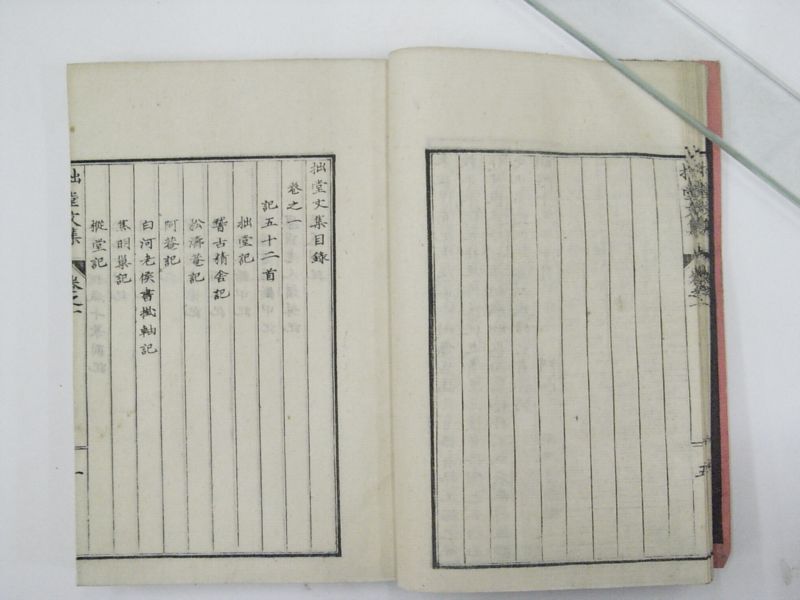 拙堂文集目錄
卷之一
記五十二首
拙堂記
稽古精舍記
松濤菴記
阿菴記
白河老侯書掛軸記
棊明巢記
樅堂記
拙堂文集
卷之一
一
五